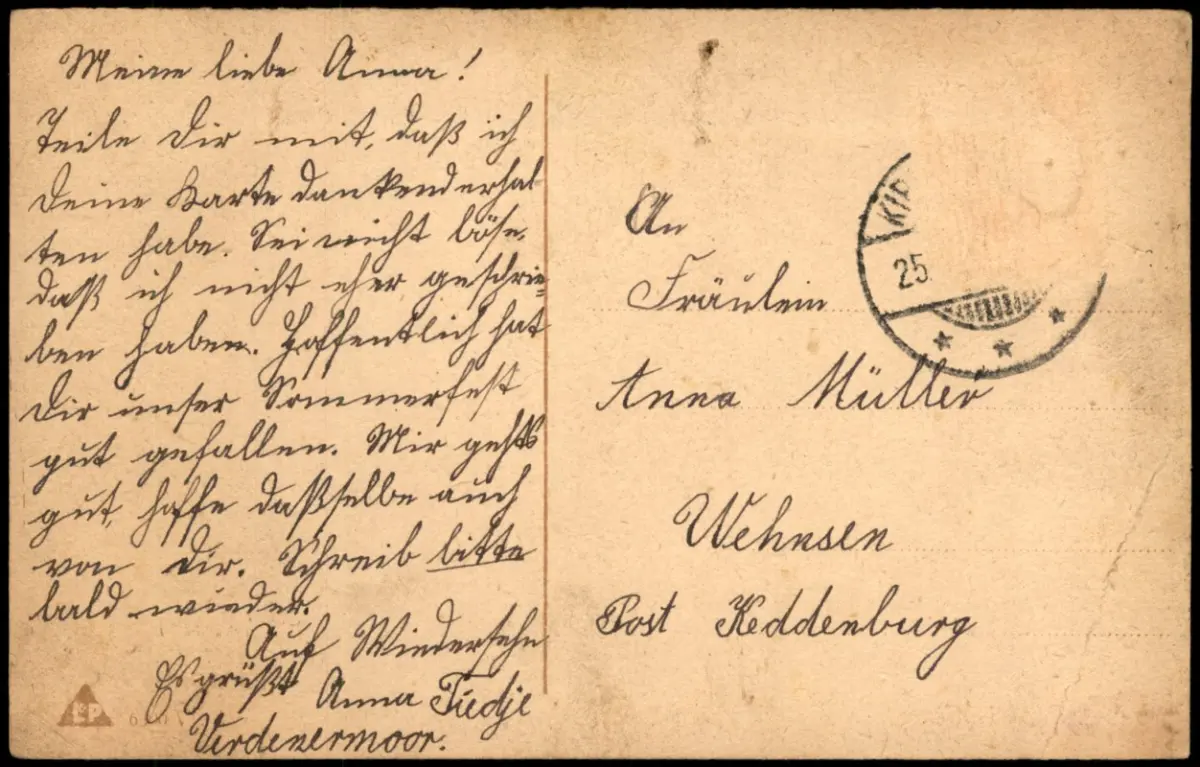 Meine liebe Anna!
Teile Dir mit, daß ich
Deine Karte dankend erhal-
ten habe. Sei nicht böse,
daß ich nicht eher geschrie-
ben haben. Hoffentlich hat
Dir unser Sommerfest
gut gefallen. Mir gehts
gut, hoffe daßselbe auch
von Dir. Schreib bitte
bald wieder.
Auf Wiedersehn
Es grüßt Anna Tiedje
Verdenermoor.
An
Fräulein
Anna Müller
Wehnsen
Post Heddenburg
KIR
25.